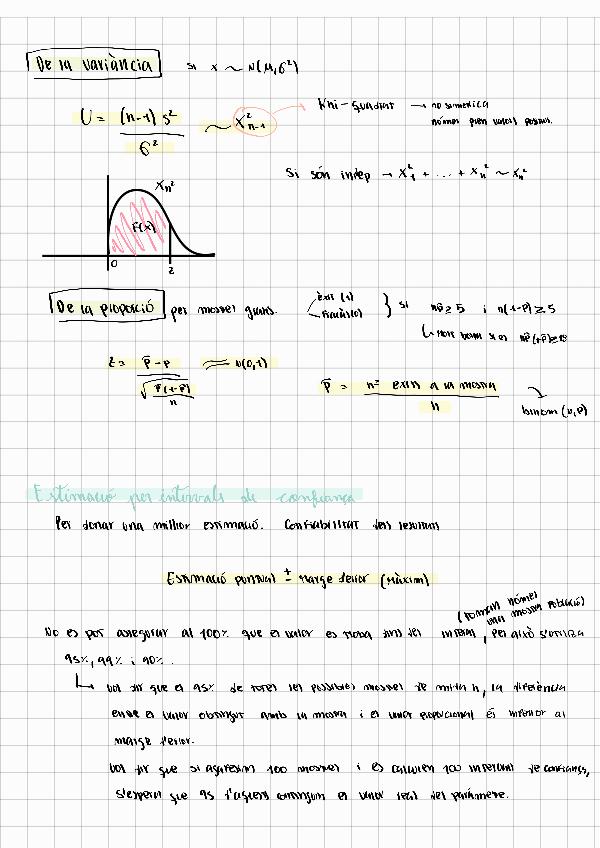 De la variància si X ~ N(μ, σ²)
U = (n-1) s² / σ² ~ X²n-1 Khi-quadrat → no simetrica
només pren valors positius.
Si són indep → X²1 + ... + X²n ~ X²n
Xn²
F(x)
0 z
De la proporció per mostres grans. èxit (1) fracàs(0) } si np̄ ≥ 5 i n(1-p̄) ≥ 5
Z = p̄ - p / √ p(1-p) / n ≈ N(0,1)
p̄ = nº èxits a la mostra / n
binom (n,p)
Estimació per intervals de confiança
Per donar una millor estimació. Confiabilitat dels resultats
Estimació puntual ± marge d'error (màxim)
(tornem només una mostra població)
No es pot assegurar al 100% que el valor es troba dins del interval, per això s'utilitza
95%, 99% i 90%.
vol dir que el 95% de totes les possibles mostres de mida n, la diferència
entre el valor obtingut amb la mostra i el valor poblacional és inferior al
marge d'error.
Vol dir que si agafessim 100 mostres i es calculen 100 intervals de confiança,
s'espera que 95 d'aquests continguin el valor real del paràmetre.